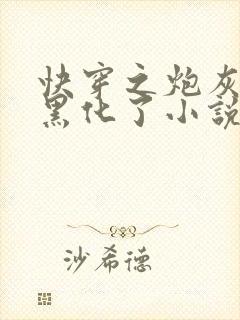 快穿之炮灰
黑化了小說
沙希德